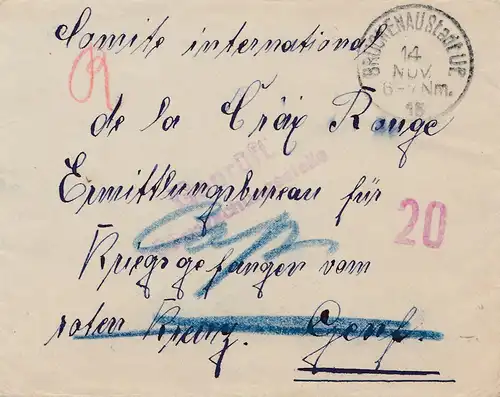 Comite international
de la Cráx Rouge
Ermittlungsbureau für
Kriegsgefangen vom
roten Kreuz. Genf.
BRÜCKENAU Stadt
14
NOV.
6-7 Nm.
15
Geprüft
20